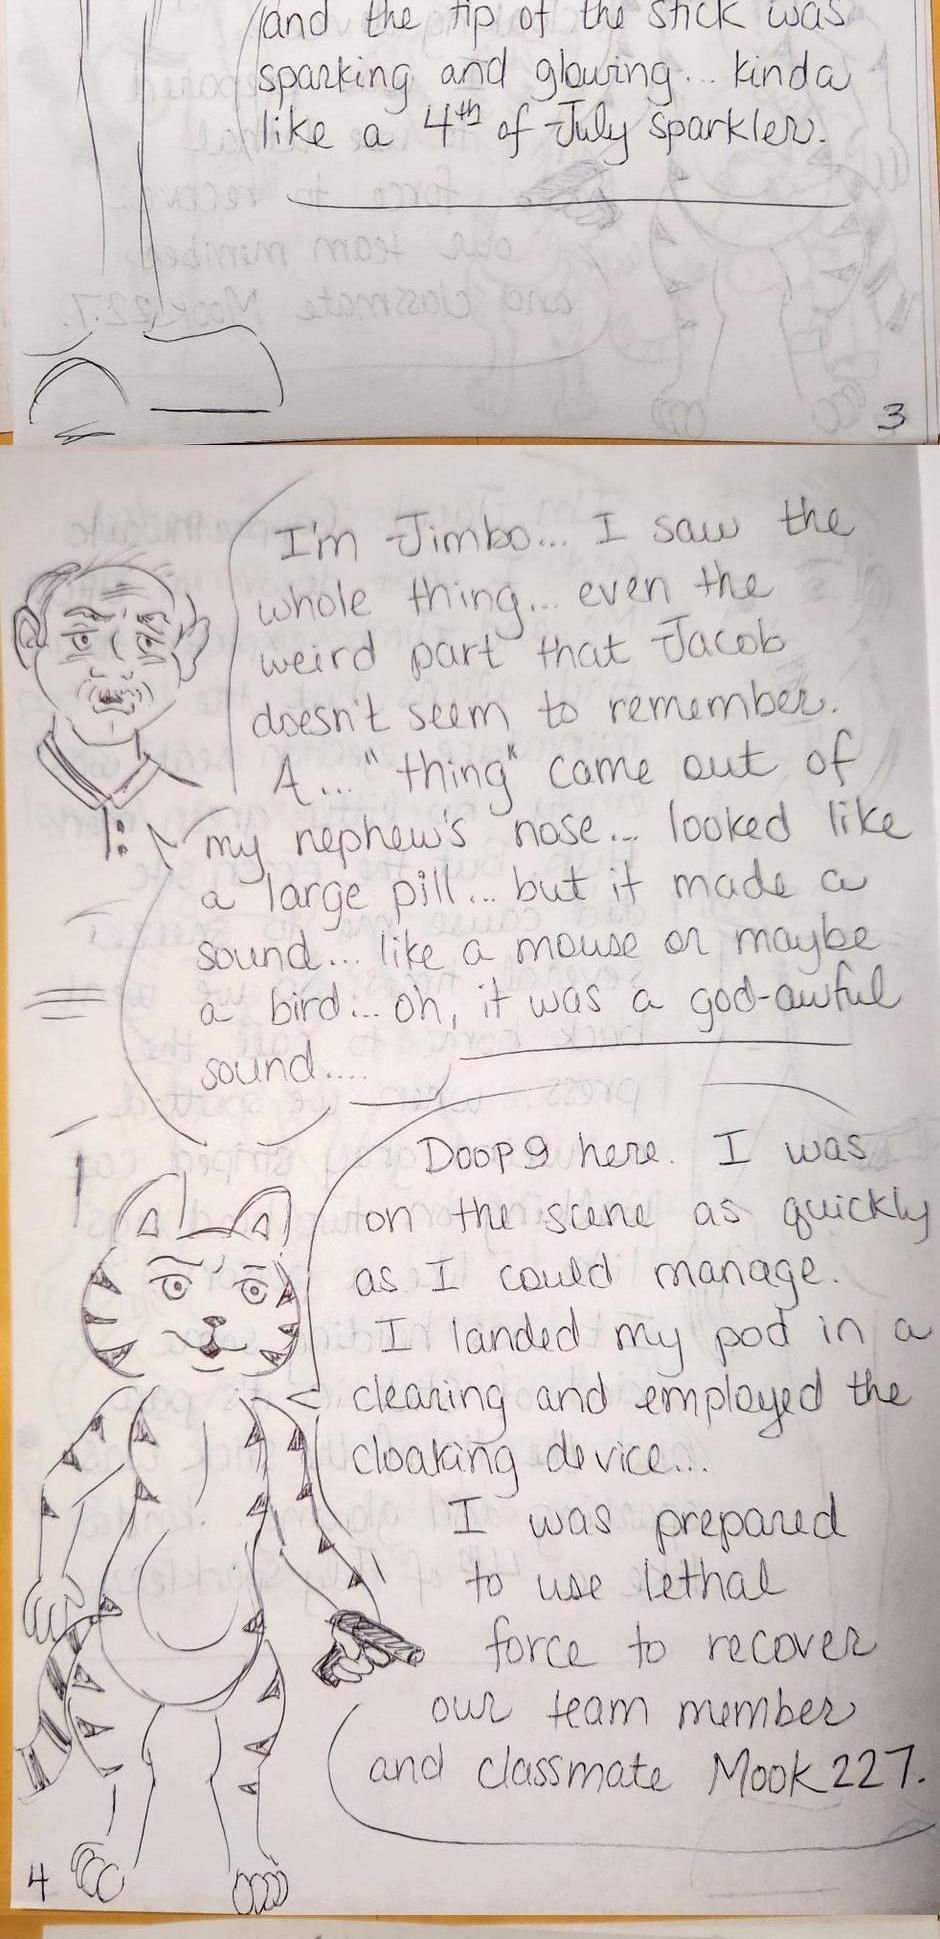 and the tip of the stick was
sparking and glowing... kinda
like a 4th of July sparkler.
3
I'm Jimbo... I saw the
whole thing... even the
weird part that Jacob
doesn't seem to remember.
A... "thing" came out of
my nephew's nose... looked like
a large pill... but it made a
sound... like a mouse or maybe
a bird... oh, it was a god-awful
sound....
Doop9 here. I was
on the scene as quickly
as I could manage.
I landed my pod in a
clearing and employed the
cloaking device...
I was prepared
to use lethal
force to recover
our team member
and classmate Mook227.
4